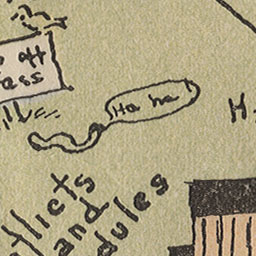 off
ess
Ha ha!
H
flicts
and
dules